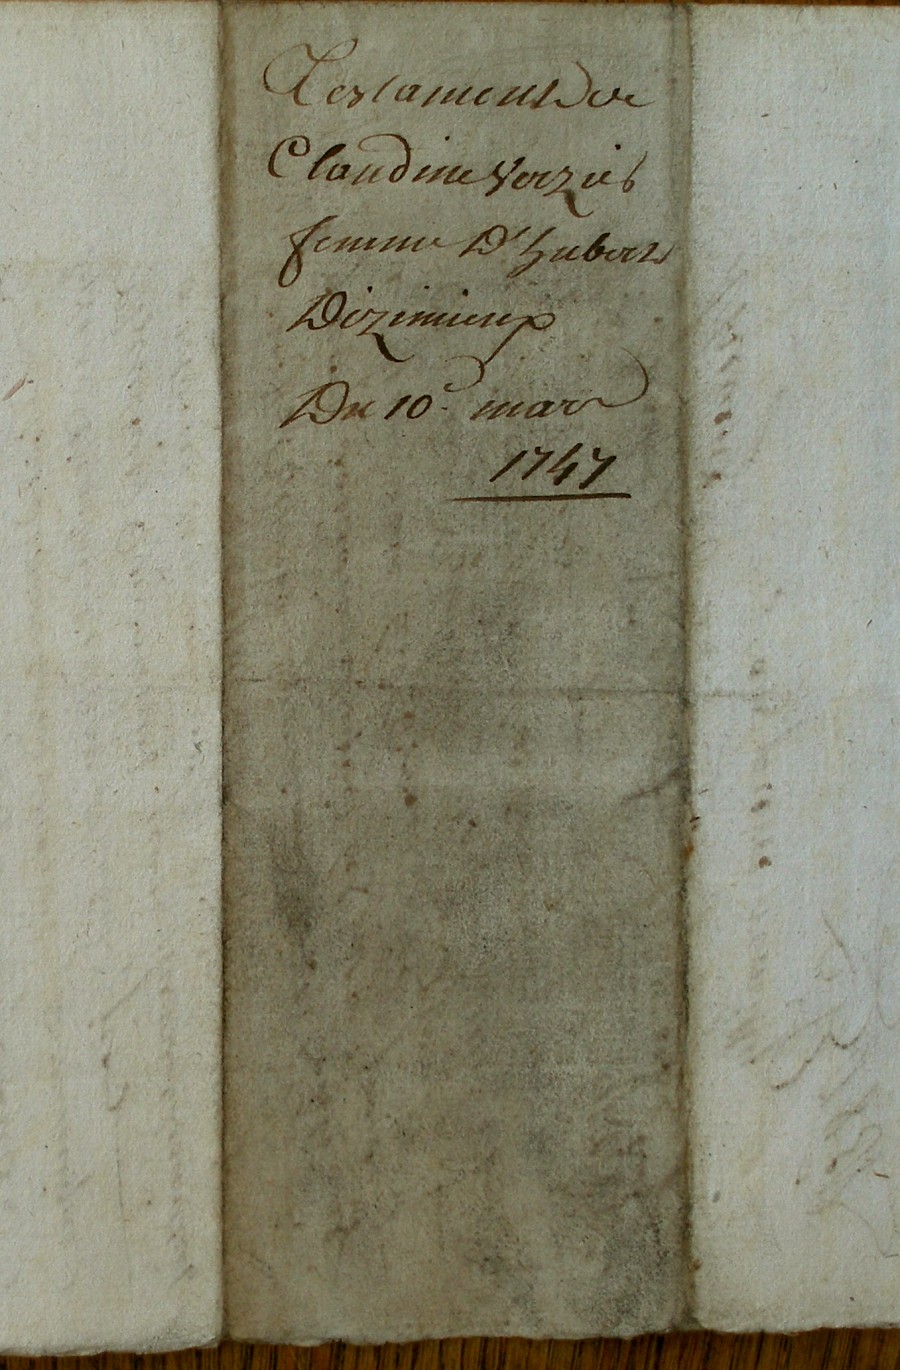 Testament de
Claudine Verziés
femme D'hubert
Dizimieux
Du 10e mars
1747